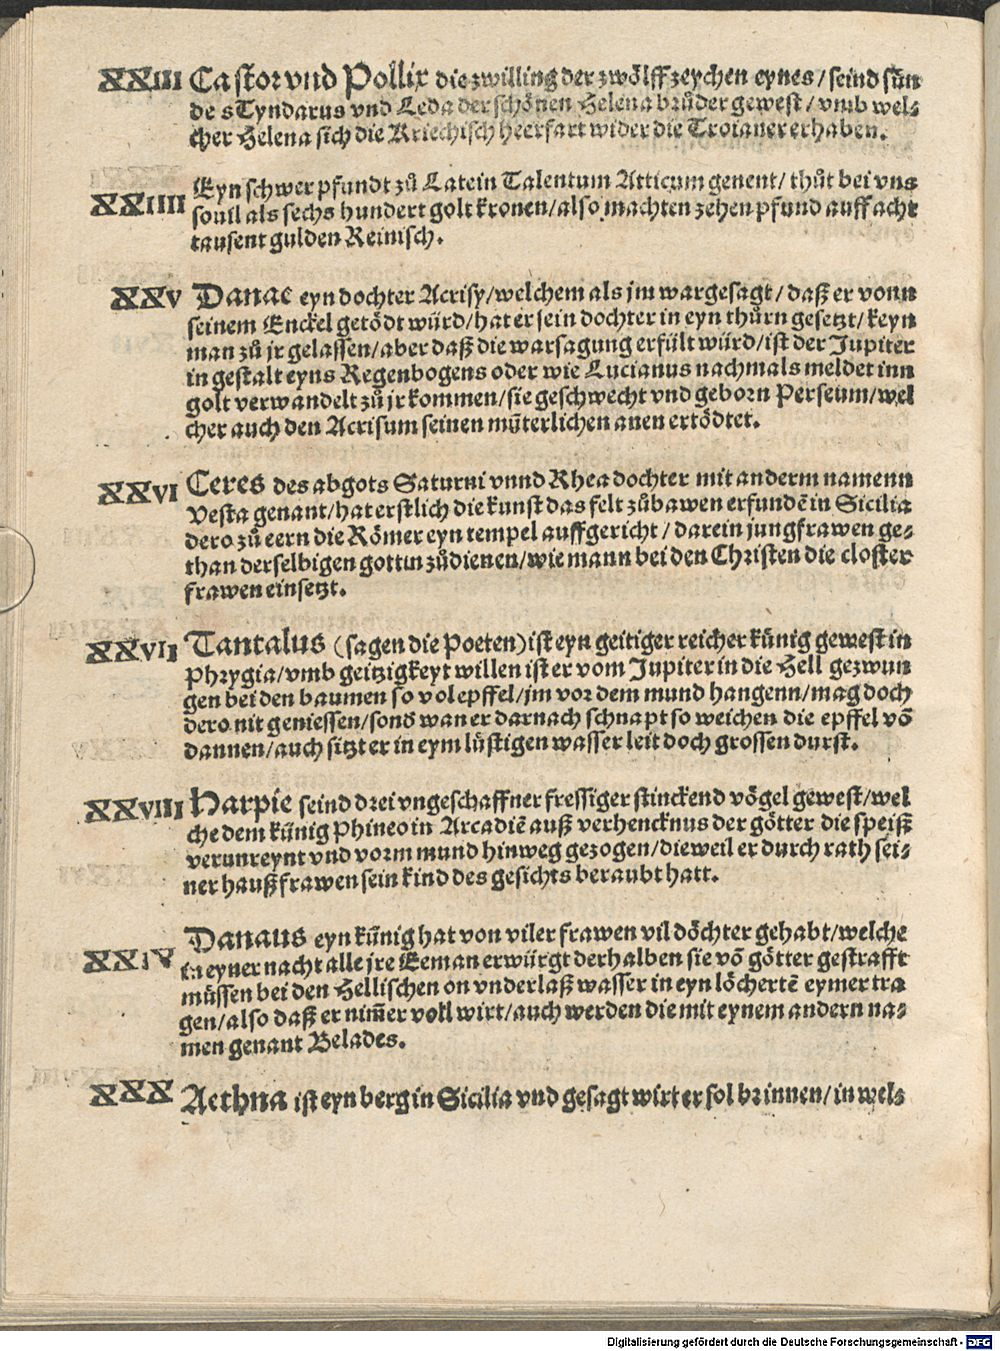 XXIII Castor vnd Pollix die zwilling der zwölff zeychen eynes / seind sün
de s Tyndarus vnd Leda der schönen Helena brůder gewest / vmb wel⸗
cher Helena sich die Kriechisch heerfart wider die Troianer erhaben.
XXIIII Eyn schwer pfundt zů Latein Talentum Atticum genent / thůt bei vns
souil als sechs hundert golt kronen / also machten zehen pfund auff acht
tausent gulden Reinisch.
XXV Danae eyn dochter Acrisy / welchem als jm war gesagt / daß er vonn
seinem Enckel getödt würd / hat er sein dochter in eyn thůrn gesetzt / keyn
man zů jr gelassen / aber daß die warsagung erfült würd / ist der Jupiter
in gestalt eyns Regenbogens oder wie Lucianus nachmals meldet inn
golt verwandelt zů jr kommen / sie geschwecht vnd geborn Perseum / wel
cher auch den Acrisum seinen müterlichen anen ertödtet.
XXVI Ceres des abgots Saturni vnnd Rhea dochter mit anderm namenn
Vesta genant / hat erstlich die kunst das felt zůbawen erfundẽ in Sicilia
dero zů eern die Römer eyn tempel auffgericht / darein jungfrawen ge⸗
than derselbigen gottin zůdienen / wie mann bei den Christen die closter
frawen einsetzt.
XXVII Tantalus (sagen die Poeten) ist eyn geitiger reicher künig gewest in
Phrygia / vmb geitzigkeyt willen ist er vom Jupiter in die Hell gezwun
gen bei den baumen so vol epffel / jm vor dem mund hangenn / mag doch
dero nit geniessen / sond wan er darnach schnapt so weichen die epffel võ
dannen / auch sitzt er in eym lüstigen wasser leit doch grossen durst.
XXVIII Harpie seind drei vngeschaffner fressiger stinckend vögel gewest / wel
che dem künig Phineo in Arcadiẽ auß verhencknus der götter die speiß
verunreynt vnd vorm mund hinweg gezogen / dieweil er durch rath sei⸗
ner haußfrawen sein kind des gesichts beraubt hatt.
XXIV Danaus eyn künig hat von viler frawen vil döchter gehabt / welche
in eyner nacht alle jre Eeman erwürgt derhalben sie võ götter gestrafft
müssen bei den Hellischen on vnderlaß wasser in eyn löchertẽ eymer tra
gen / also daß er nim̃er voll wirt / auch werden die mit eynem andern na⸗
men genant Belades.
XXX Aethna ist eyn berg in Sicilia vnd gesagt wirt er sol brinnen / in wel⸗
Digitalisierung gefördert durch die Deutsche Forschungsgemeinschaft - DFG